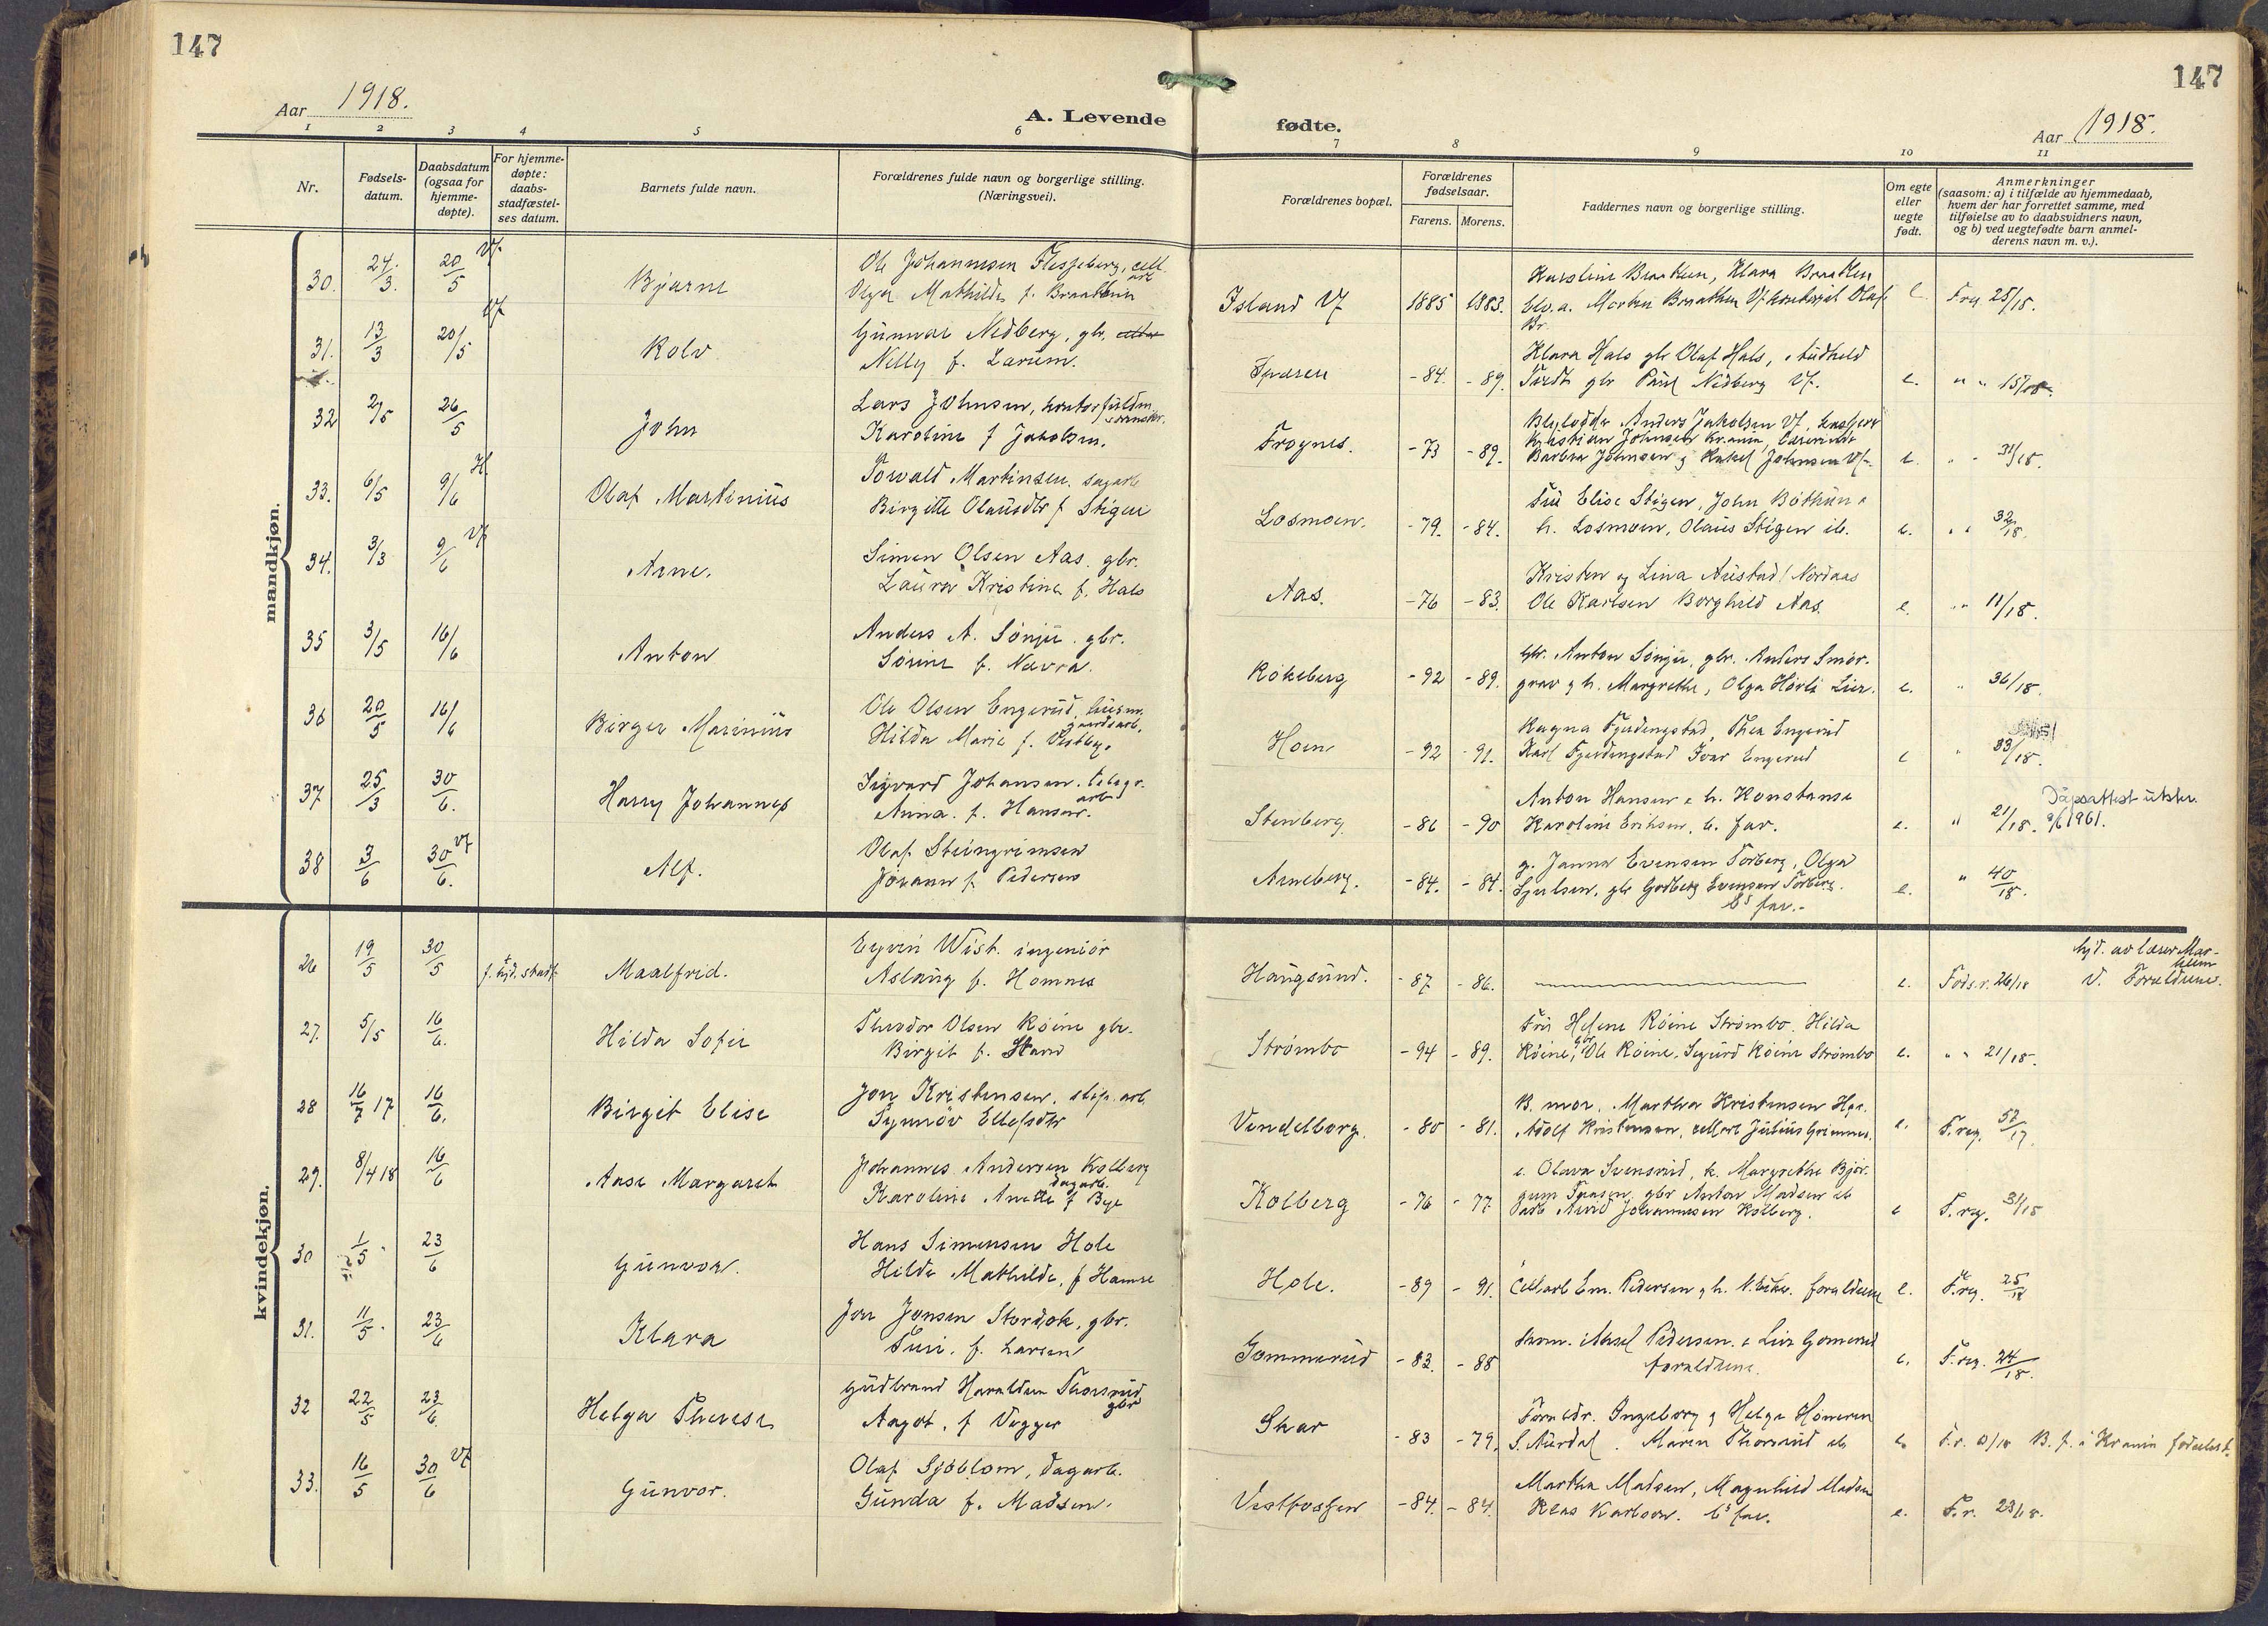 147
147
Aar 1918.
A. Levende fødte.
Aar 1918.
1 2 3 4 5 6 7 8 9 10 11
Nr.
Fødsels-
datum.
Daabsdatum
(ogsaa for
hjemme-
døpte).
For hjemme-
døpte:
daabs-
stadfæstel-
ses datum.
Barnets fulde navn.
Forældrenes fulde navn og borgerlige stilling.
(Næringsvei).
Forældrenes bopæl.
Forældrenes
fødselsaar.
Farens. Morens.
Faddernes navn og borgerlige stilling.
Om egte
eller
uegte
født.
Anmerkninger
(saasom: a) i tilfælde av hjemmedaab,
hvem der har forrettet samme, med
tilføielse av to daabsvidners navn,
og b) ved uegtefødte barn anmel-
derens navn m. v.).
mandkjøn.
30. 24/3. 20/5 Vf. Bjarne
Ole Johannesen Flesseberg, cell.
arb.
Olga Mathilde f. Braathen
Island Vf 1885 1883.
Karoline Braathen, Klara Braathen
Morten Braathen Vf. Olaf
Br.
e. F.reg 25/18.
31. 13/3 20/5 Vf Rolv
Gunnar Nedberg, gbr.
Nelly f. Larum.
-84. -89.
Klara Hals gbr Olaf Hals, Audhild
gbr Paul Nedberg Vf.
e. " " 15/18.
32 2/5 26/5 John
Lars Johnsen,
Karoline f Jakobsen.
Frognes. -73 -89.
Anders Jakobsen Vf,
Kristian Johnsen Kr.ania,
Barbra Johnsen & Rakel Johnsen Vf.
e. " " 31/18.
33. 6/5 9/6 H Olaf Martinius
Torvald Martinsen. sagarb
Birgitte Olausdtr f Stigen
Losmoen. -79. -84.
Fru Elise Stigen, John Bøthun &
h. Losmoen, Olaus Stigen ib.
e. " " 32/18.
34. 3/3 9/6 Vf Arne.
Simen Olsen Aas. gbr.
Laura Kristine f. Hals
Aas. -76 -83.
Kristen og Lina Austad/Nordaas
Ole Karlsen Borghild Aas.
e. " " 11/18.
35 3/5 16/6 Anton
Anders A. Sønju. gbr.
Sørine f. Nævra.
Røkeberg -92 -89.
gbr. Anton Sønju, gbr. Anders Smør-
grav & h. Margrethe, Olga Hørli Lier.
e. " 36/18.
36 20/5 16/6 Birger Marinius
Ole Olsen Engerud, husm.
gaardsarb.
Hilda Marie f. Vestby.
Hoen -92 -91.
Ragna Fjerdingstad, Thea Engerud
Karl Fjerdingstad Ivar Engerud
e " 33/18.
37 25/3 30/6. Harry Johannes
Sigvard Johansen.
arb
Anna. f. Hansen.
Stenberg -86 -90
Anton Hansen & h. Konstanse
Karoline Eriksen, b. far.
e. " 21/18. Dåpsattest utster.
9/6 1961.
38 3/6 30/6. Vf Alf.
Olaf Steingrimsen
Johann f. Pedersen
Arneberg. -84. -84.
g. Janna Evensen Torberg, Olga
gbr Godberg Evensen Torberg.
bs far.-
e. " 40/18.
kvindekjøn.
26 19/5 30/5 f. hjd. stadf. Maalfrid.
Eyvin Wist. ingeniør
Aslaug f. Homnes
Haugsund. -87 -86.
e. Føds.r. 26/18
hjd. av lærer Mar-
heim
v. Forældrene.
27. 5/5 16/6. Hilda Sofie
Theodor Olsen Røine gbr.
Birgit f. Strand
Strømbo -94 -89.
Fru Helene Røine Strømbo. Hilda
Røine, gbr Ole Røine, Sigurd Røine Strømbo
e. " " 21/18.
28 16/7 17 16/6. Birgit Elise
Jon Kristensen. slip.arb.
Synnöv Ellefsdtr
Vendelborg. -80 -81.
B. mor. Martha Kristensen
Adolf Kristensen, cellarb Julius Grimnes.
e. F.reg. 57/17.
29. 8/4 18 16/6 Aase Margaret
Johannes Andersen Kolberg
dagarb.
Karoline Anette f Bye
Kolberg -76 -77
e. Olava Svensrud, k. Margrethe Bjør-
gum gbr Anton Madsen ib
Arvid Johannesen Kolberg.
e F.reg. 31/18
30 1/5. 23/6 Gunvor.
Hans Simensen Hole
Hilda Mathilde, f Hamre
Hole. -89 -91.
Cellarb Em. Pedersen & h. N.Eiker. forældrene
e. F.reg. 25/18
31. 11/5. 23/6 Klara
Jon Jonsen Stordok, gbr.
Turi. f. Larsen
Gommerud -83. -88
Aksel Pedersen. & Lier Gomerud
forældrene.
e. F.reg. 24/18.
32 22/5 23/6 Helga Therese
Gudbrand Haraldsen Thorsrud
gbr
Aagot. f Vegger
Skar -83 -79.
Forældr. Ingeborg & Helga Homeren
S. Aurdal. Maren Thorsrud ib
e. F.r. B. f. i Kr.ania fødselsst.
33. 16/5 30/6 Vf Gunvor.
Olaf Sjøblom, dagarb.
Gunda f. Madsen.
Vestfossen -84. -84.
Martha Madsen, Magnhild Madsen
Klas Karlson. bs far.
e. F.r. 23/18.